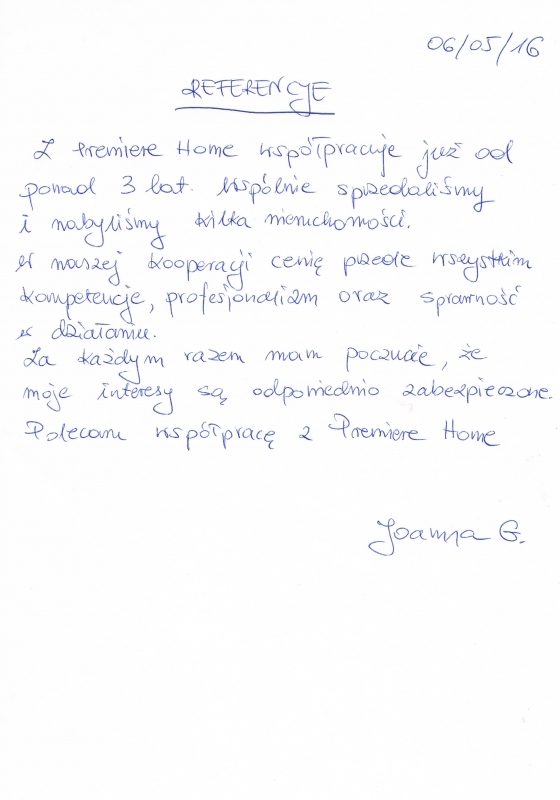 06/05/16
REFERENCJE
Z Premiere Home współpracuje już od
ponad 3 lat. Wspólnie sprzedaliśmy
i nabyliśmy kilka nieruchomości.
W naszej kooperacji cenię przede wszystkim
kompetencje, profesjonalizm oraz sprawność
w działaniu.
Za każdym razem mam poczucie, że
moje interesy są odpowiednio zabezpieczone.
Polecam współpracę z Premiere Home
Joanna G.